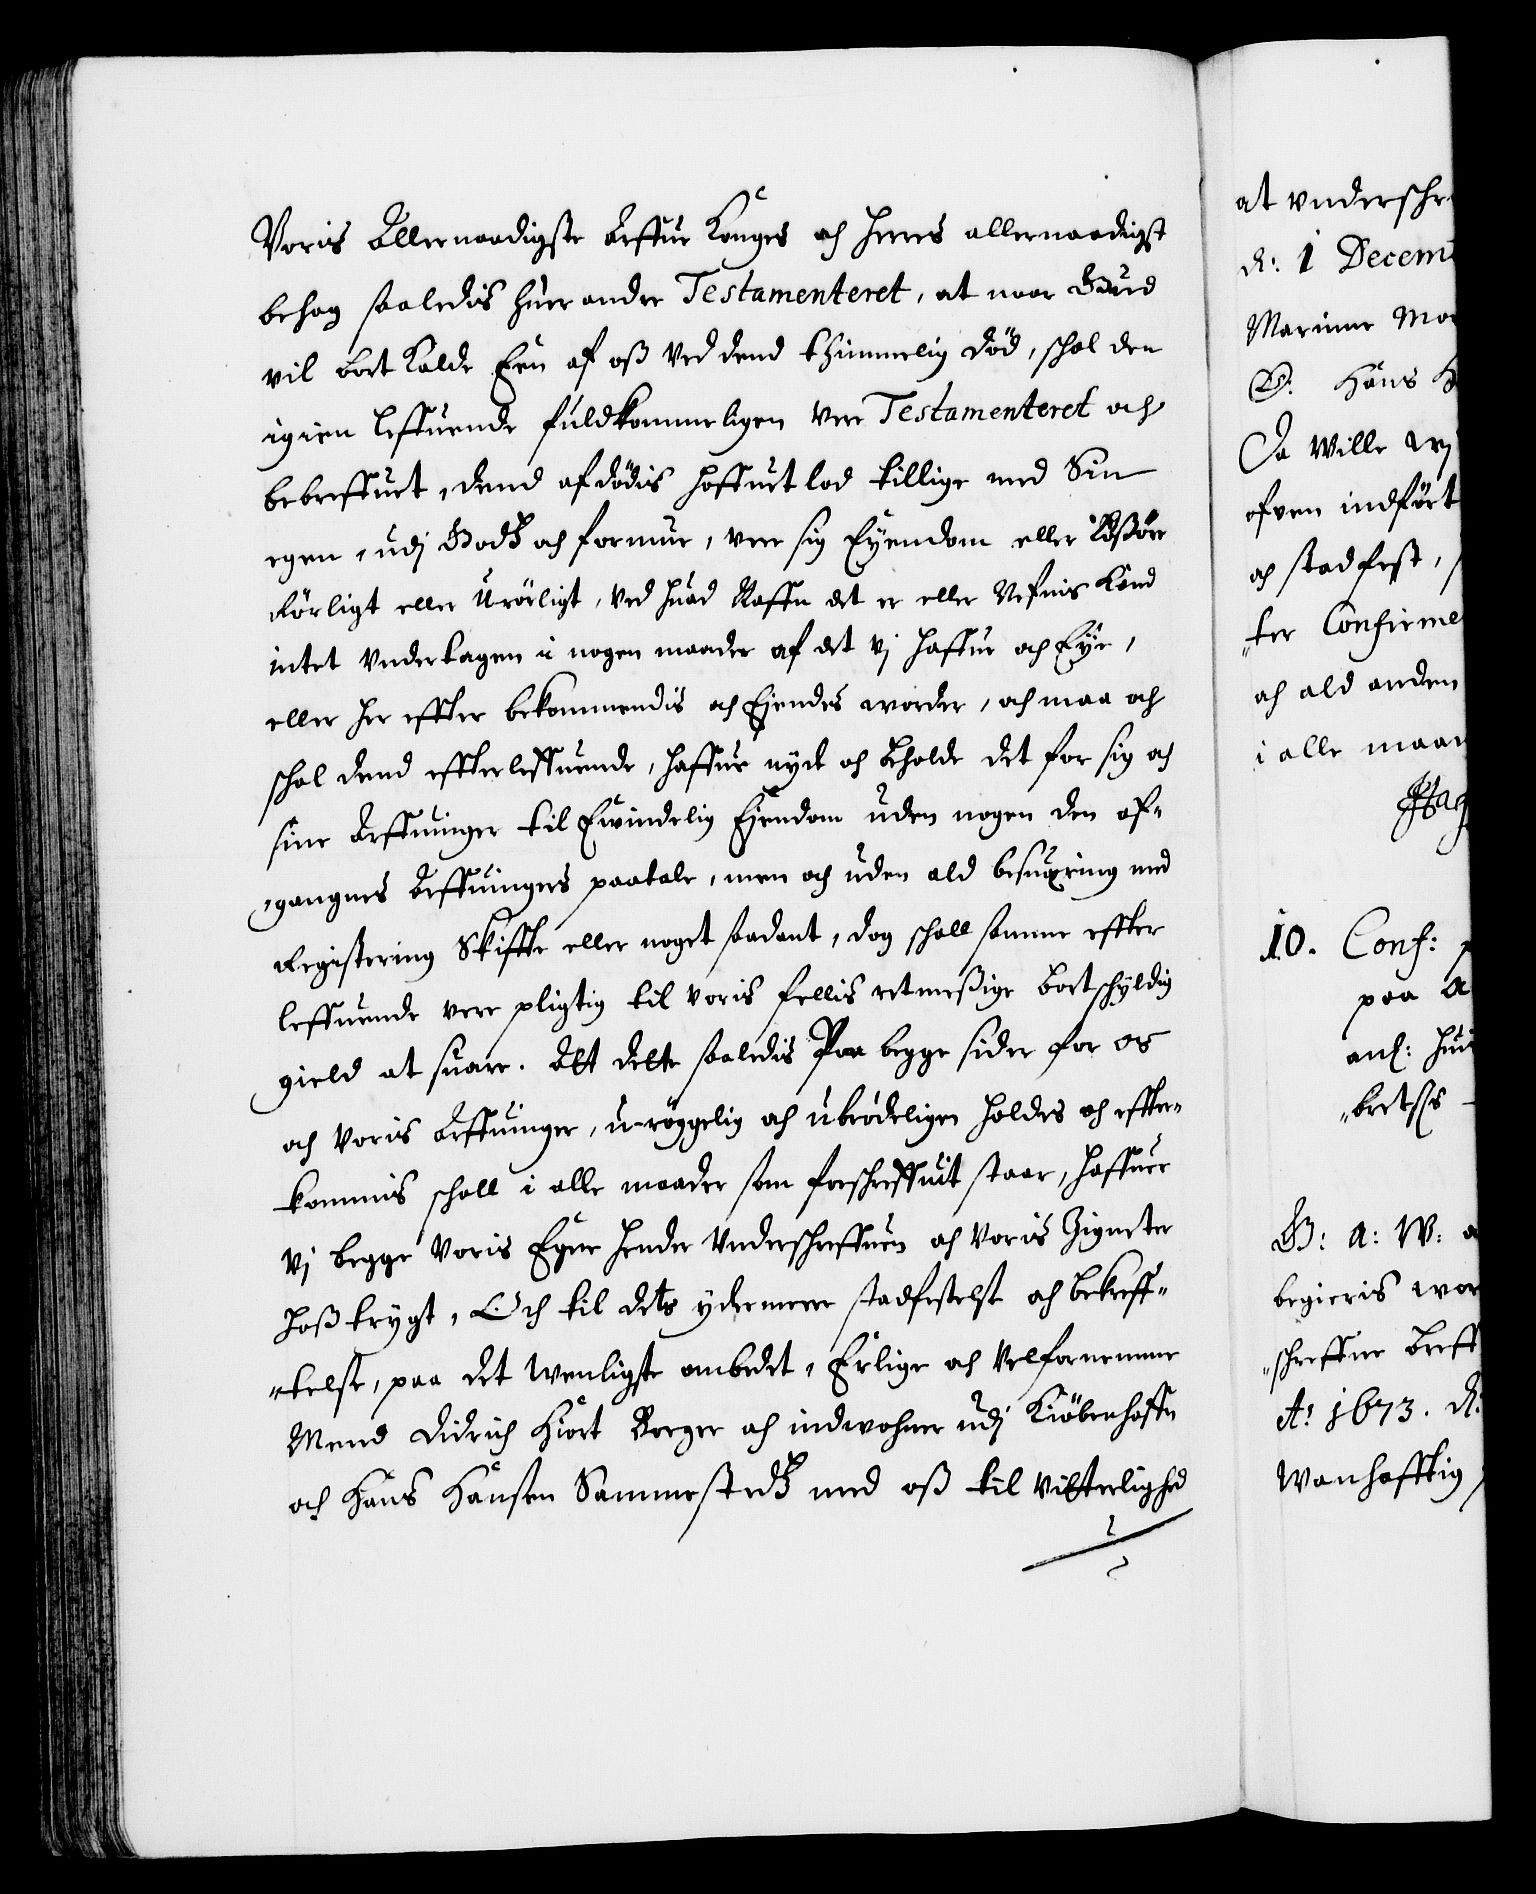 Voris Allernaadigste Arffue Konges och Herres allernaadigst
behag saaledis huer andre Testamenteret, at naar Gud
vil bort kalde Een af oß ved dend thimmelig Död, schal den
igien leffuende fuldkommeligen vere Testamenteret och
bebreffuet, dend afdödis hoffuet lod tillige med Sin
egen, udj Godß och formue, vere sig Eyendom eller Lößöre
Rörligt eller Urörligt, ved huad Naffn det er eller Nefnis kand
intet undertagen i nogen maader af det Vj haffue och Eye,
eller her effter bekommendis och Ejendes worder, och maa och
schal dend effterleffuende, haffue nyde och beholde det for sig och
sine Arffuinger til Ewindelig Eiendom uden nogen den af-
gangnes Arffuingers paatale, men och uden ald besuering med
Registering Skiffte eller noget saadant, dog schall samme effter
leffuende vere pligtig til voris fellis retmeßige bortschyldig
gield at suare. Alt dette saaledis Paa begge sider for os
och Voris Arffuinger, u-röggelig och ubrödeligen holdes och effter-
kommis schall i alle maader som forschreffuit staar, haffuer
Vj begge Voris Egne hender Underschreffuen och Voris Zigneter
hoß trygt, Och til dets ydermere stadfestelse och bekreff-
telse, paa det wenligste ombedet, Erlige och Velfornemme
Mend Didrich Hiort Borger och indwohner udj Kiöbenhaffn
och Hans Hansen Sammestedß med oß til Vitterlighed
at underschr
d: 1 Decem
Marinne
Hans
Da Wille wj
ofven indfört
och stadfest,
ter Confirme
och ald anden
i alle maa
10. Conf:
paa
anl:
G: A: W:
begieris wor
schreffne breff
Ao 1673. d:
Wanhafftig